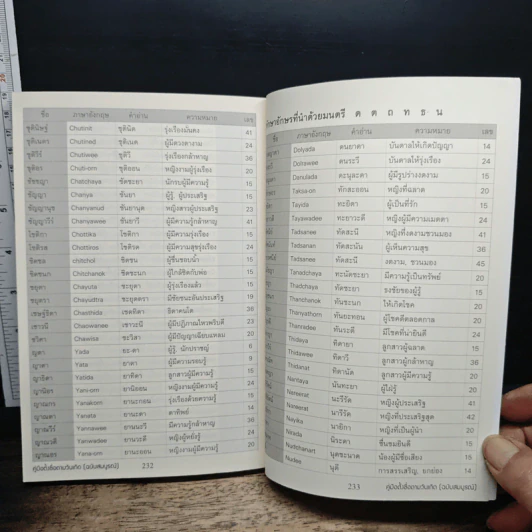 ชื่อ ภาษาอังกฤษ คำอ่าน ความหมาย เลข
ชุตินิษฐ์ Chutinit ชุตินิด รุ่งเรืองมั่นคง 41
ชุติเนตร Chutinad ชุติเนด ผู้มีดวงตางาม 24
ชุติวีร์ Chutiwee ชุติวี รุ่งเรืองกล้าหาญ 36
ชุติอร Chuti-orn ชุติออน หญิงงามผู้รุ่งเรือง 20
Chatchaya ชัดชะยา นักรบผู้มีความรู้ 15
ชัญญา Chanya ชันยา ผู้รู้, ผู้ประเสริฐ 15
ชัญญานุช Chanyanud ชันยานุด หญิงสาวผู้ประเสริฐ 24
ชัญญาวีร์ Chanyawee ชันยาวี ผู้มีความรู้กล้าหาญ 41
โชติกา Chottika โชติกา ผู้มีความรุ่งเรือง 15
โชติรส Chottiros โชติรด ผู้มีความสุขรุ่งเรือง 24
ชิตชล chitchol ชิดชน ผู้ชื่นชอบน้ำ 15
ชิดชนก Chitchanok ชิดชะนก ผู้ใกล้ชิดกับพ่อ 15
ชยุตา Chayuta ชะยุตา ผู้รุ่งเรืองแล้ว 15
ชยุตรา Chayudtra ชะยุดตรา มีชัยชนะอันประเสริฐ 19
เชษฐ์ธิดา Chesthida เชดถิดา ธิดาคนโต 36
เชาวนี Chaowanee เชาวะนี ผู้มีปฏิภาณไหวพริบดี 23
ชวิศา Chawisa ชะวิสา ผู้มีปัญญาเฉียบแหลม 20
ญดา Yada ยะ-ดา ผู้รู้, นักปราชญ์ 6
ญาตา Yata ยาตา ผู้มีความรอบรู้ 9
ญาธิดา Yatida ยาทิดา ลูกสาวผู้มีความรู้ 14
ญาณิอร Yani-orn ยานิออน หญิงงามผู้มีความรู้ 24
ญาณกร Yanakorn ยานะกอน รุ่งเรืองด้วยความรู้ 24
Yanata ยานะตา ดาทิพย์ 14
ญาณวีร์ Yannawee ยานนะวี มีความรู้กล้าหาญ 41
ญาณวดี Yanwadee ยานวะดี หญิงผู้หยั่งรู้ 24
ญาณอร Yang-orn ยานะออน หญิงงามผู้มีความรู้ 20
232 คู่มือตั้งชื่อตามวันเกิด (ฉบับสมบูรณ์)
อักษรที่นำด้วยมนตรี ด ต ถ ท ธ น
ภาษาอังกฤษ คำอ่าน ความหมาย เลข
Dolyada ดนยาดา บันดาลให้เกิดปัญญา 14
ดนระวี บันดาลให้รุ่งเรือง 24
Danulada ดะนุละดา ผู้มีรูปร่างงดงาม 15
ทักสะออน หญิงที่ฉลาด 20
Tayida ทะยิดา ผู้เป็นที่รัก 15
Tayawadee ทะยาวะดี หญิงผู้มีความเมตตา 24
Tadsanee ทัดสะนี หญิงที่งดงามชวนมอง 41
Tadsanan ทัดสะนัน ผู้เห็นความสุข 36
Tadsanee ทัดสะนี งดงาม, ชวนมอง 45
Tanadchaya ทะนัดชะยา มีความรู้เป็นทรัพย์ 20
Thadchaya ทัดชะยา ธงชัยของผู้รู้ 20
Thanchanok ทันชะนก ให้เกิดโชค 20
Thanyathorn ทันยะทอน ผู้โชคดีตลอดกาล 20
Thanradee ทันระดี มีโชคที่น่ายินดี 24
Thidaya ทิดายา ลูกสาวผู้ฉลาด 15
Thidawee ทิดาวี ลูกสาวผู้กล้าหาญ 36
Thidanat ทิดานัด ลูกสาวผู้มีความรู้ 24
Nantaya นันทะยา ผู้ใฝ่รู้ 20
Nareerat นะรีรัด หญิงผู้ประเสริฐ 24
Nareerat นารีรัด หญิงที่ประเสริฐสุด 42
Nayika นายิกา หญิงที่เป็นผู้นำ 20
Nirada นิระดา ชื่นชมยินดี 15
Nudshanart นุดชะนาด น้องผู้มีชื่อเสียง 15
Nudee นุดี การสรรเสริญ, ยกย่อง 14
233 คู่มือตั้งชื่อตามวันเกิด (ฉบับสมบูรณ์)